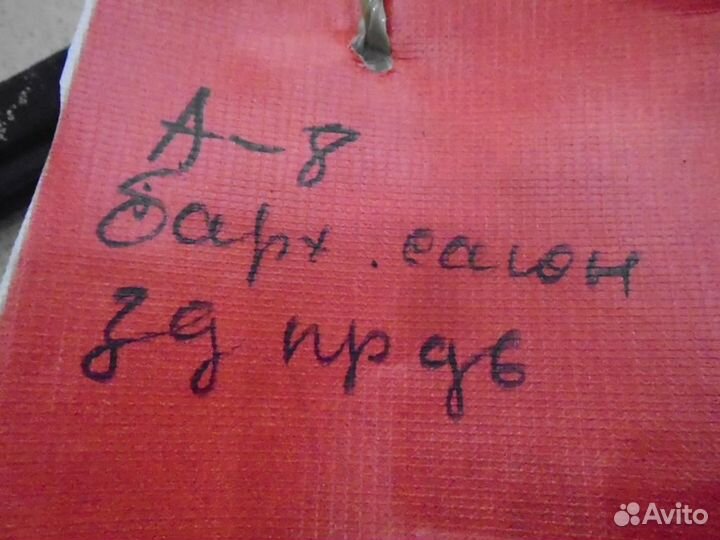 А-8
барх. салон
зд пр дв
Avito